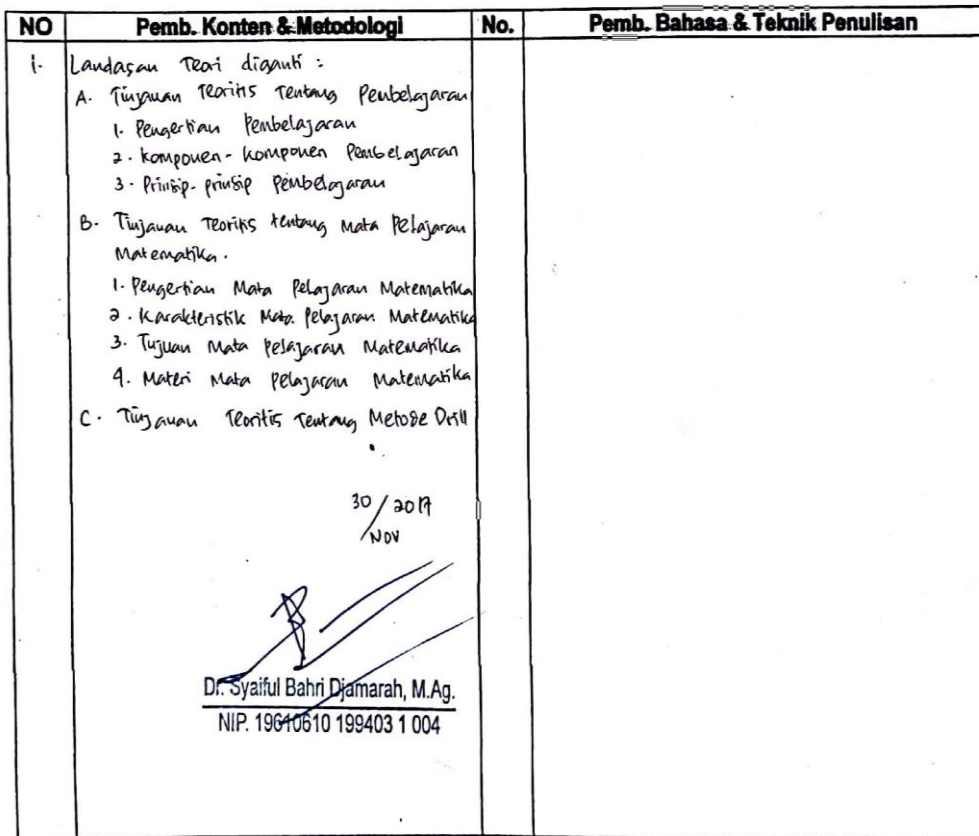 NO Pemb. Konten & Metodologi No. Pemb. Bahasa & Teknik Penulisan
1. Landasan Teori diganti :
A. Tinjauan Teoritis Tentang Pembelajaran
1. Pengertian Pembelajaran
2. Komponen-Komponen Pembelajaran
3. Prinsip-prinsip Pembelajaran
B. Tinjauan Teoritis tentang Mata Pelajaran
Matematika.
1. Pengertian Mata Pelajaran Matematika
2. Karakteristik Mata Pelajaran Matematika
3. Tujuan Mata pelajaran Matematika
4. Materi Mata Pelajaran Matematika
C. Tinjauan Teoritis Tentang Metode Drill
30 / 2017
/ Nov
Dr. Syaiful Bahri Djamarah, M.Ag.
NIP. 19610610 199403 1 004